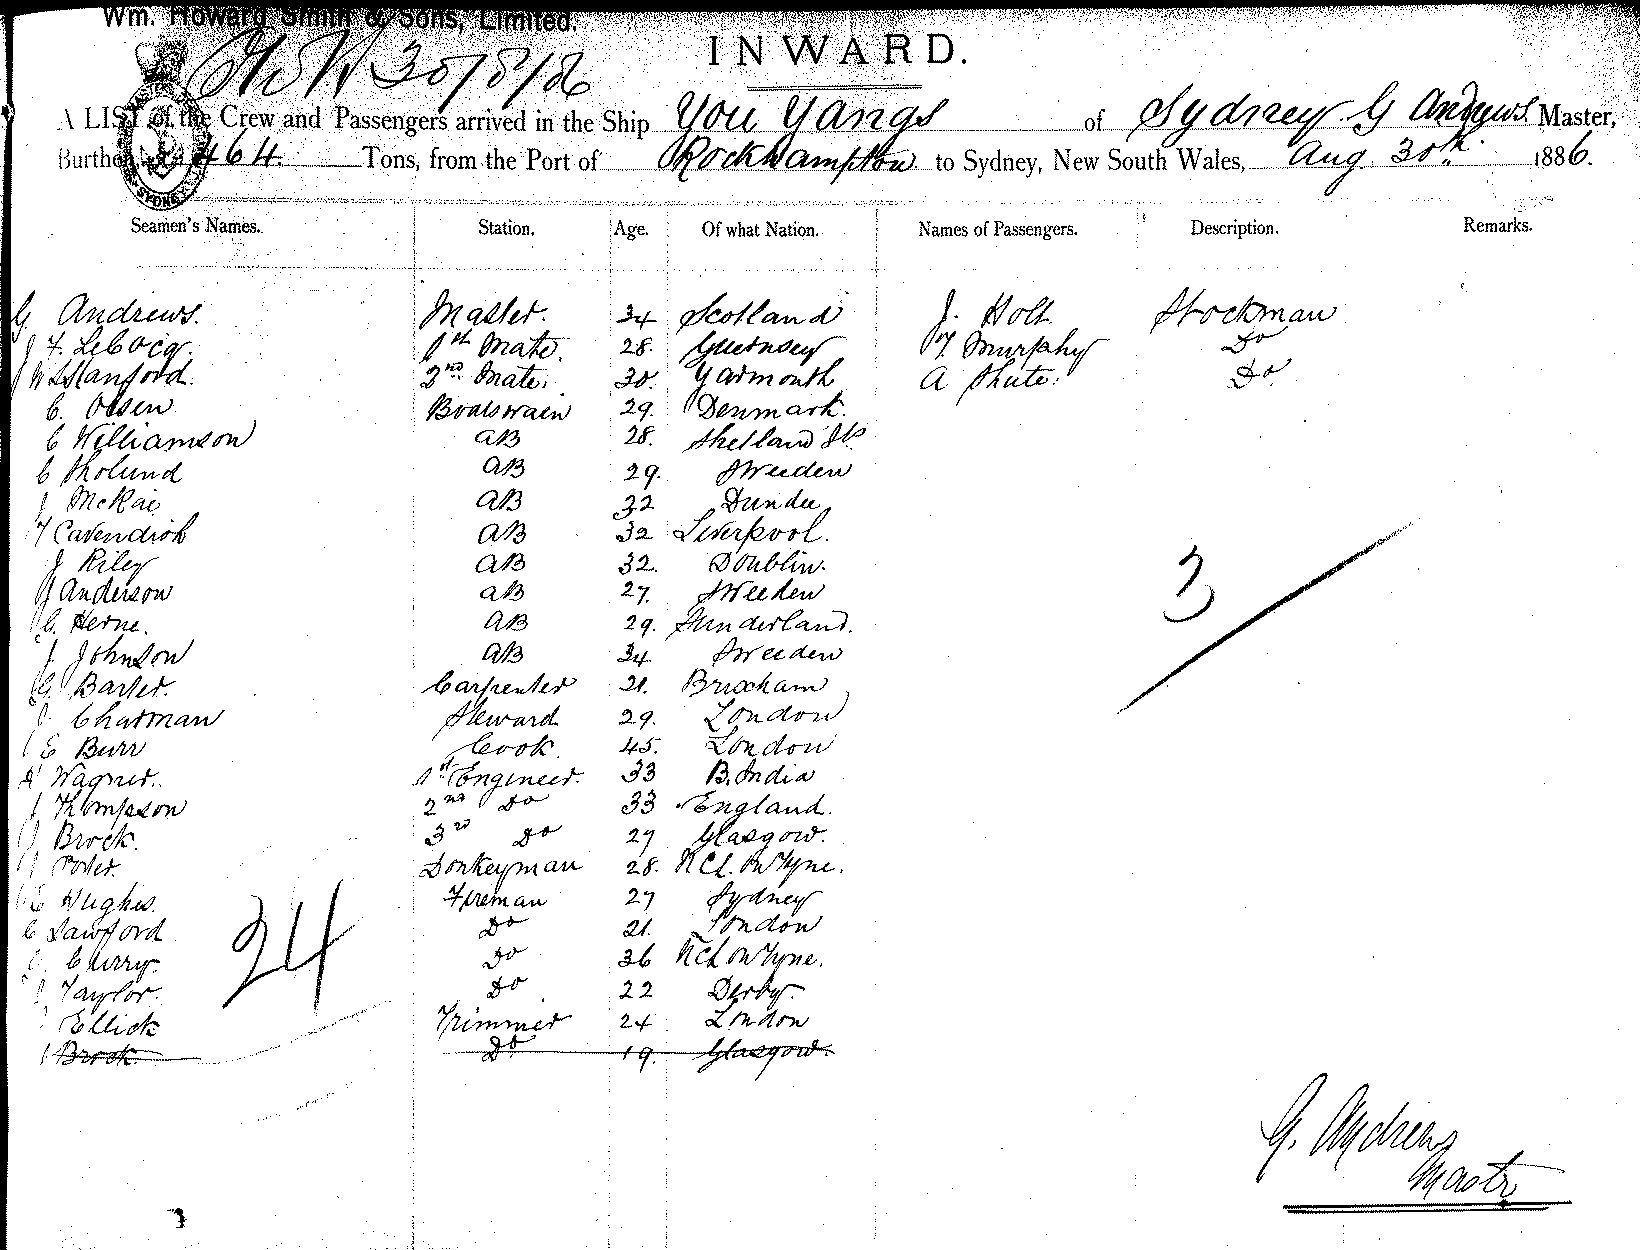 Wm. Howard Smith & Sons, Limited.
30/8/86
INWARD.
A LIST of the Crew and Passengers arrived in the Ship You Yangs of Sydney G Andrews Master,
Burthen 464 Tons, from the Port of Rockhampton to Sydney, New South Wales, Aug 30th 1886.
Seamen's Names. Station. Age. Of what Nation. Names of Passengers. Description. Remarks.
G Andrews. Master. 34 Scotland J. Holt Stockman
J F. LeCocq. 1st Mate. 28. Guernsey T. Murphy Do
W Stanford. 2nd Mate. 30. Yarmouth A Shute. Do
C. Olsen Boatswain 29. Denmark.
C Williamson AB 28. Shetland Is
C Sholund AB 29. Sweeden
J McRae AB 32 Dundee
T Cavendish AB 32 Liverpool.
J Riley AB 32. Doublin.
J Anderson AB 27. Sweeden
C. Herne. AB 29. Sunderland.
J. Johnson AB 34 Sweeden
G. Barter. Carpenter 21. Brixham
J. Chatman Steward 29. London
E Burr Cook. 45. London
Wagner. 1st Engineer. 33 B. India
J Thompson 2nd Do 33 England.
J Brock. 3rd Do 27 Glasgow.
J Porter. Donkeyman 28. NCl. On Tyne.
E Hughes. Fireman 27 Sydney
C Lawford Do 21. London
Curry. Do 36 NCl on Tyne.
J Taylor. Do 22 Derby.
Ellick Trimmer 24 London
J Brock. Do 19. Glasgow.
24
3
G. Andrews
Master